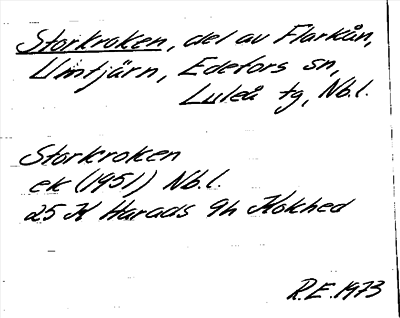 Storkroken, del av Flarkån,
Umtjärn, Edefors sn,
Luleå tg, Nb.l.
Storkroken
ek (1951) Nb.l.
25 K Harads 9h Kolched
R.E. 1973